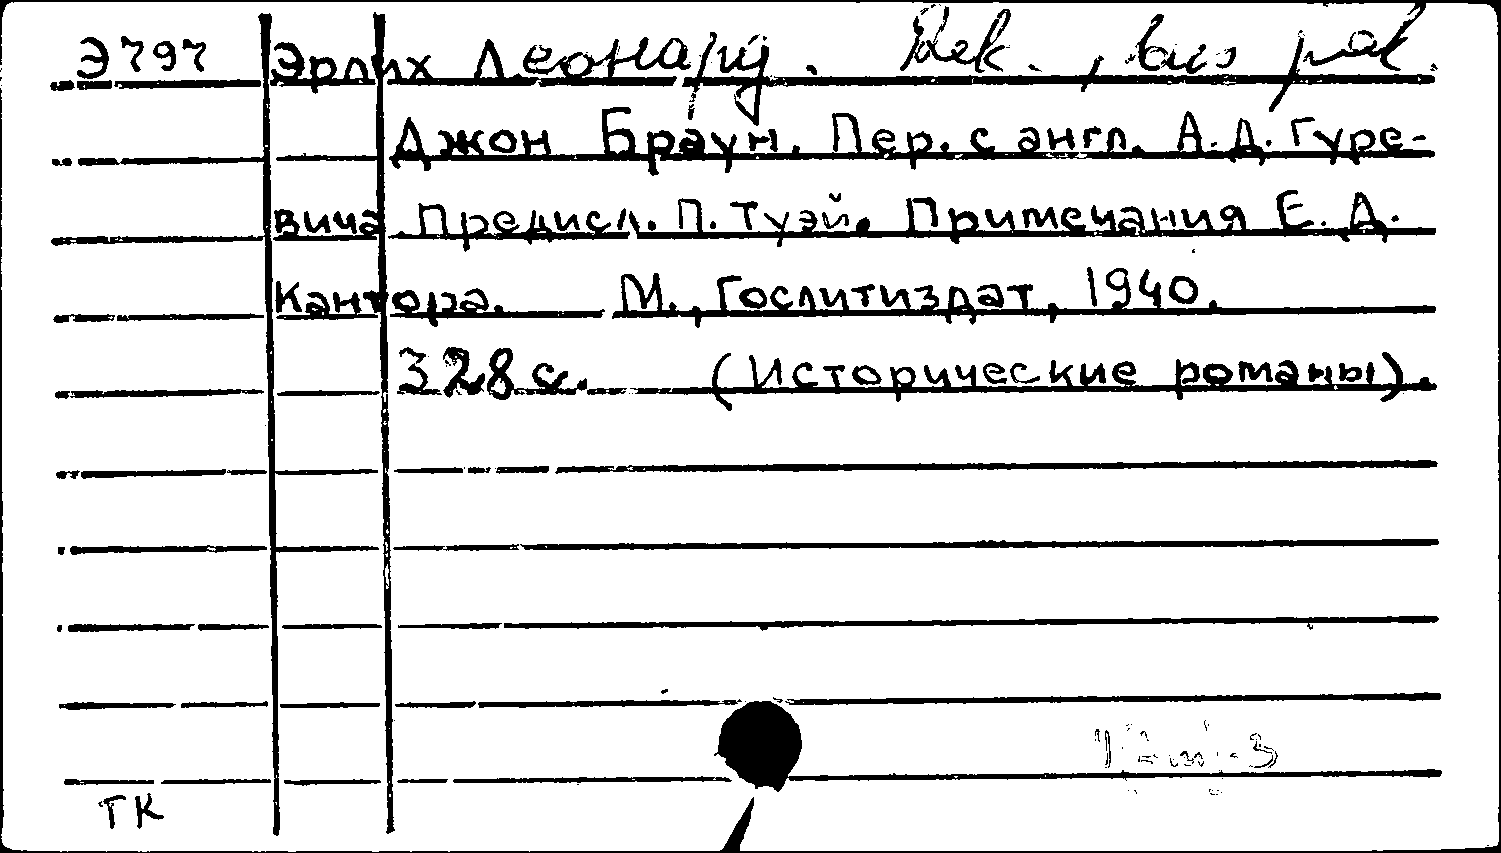 Э797 Эрлих Леонард.
Джон Браун. Пер. с англ. А. Д. Гуре-
вича. Предисл. П. Туэй. Примечания Е. Д.
Кантора. М., Гослитиздат, 1940.
328 с. (Исторические романы).
ТК